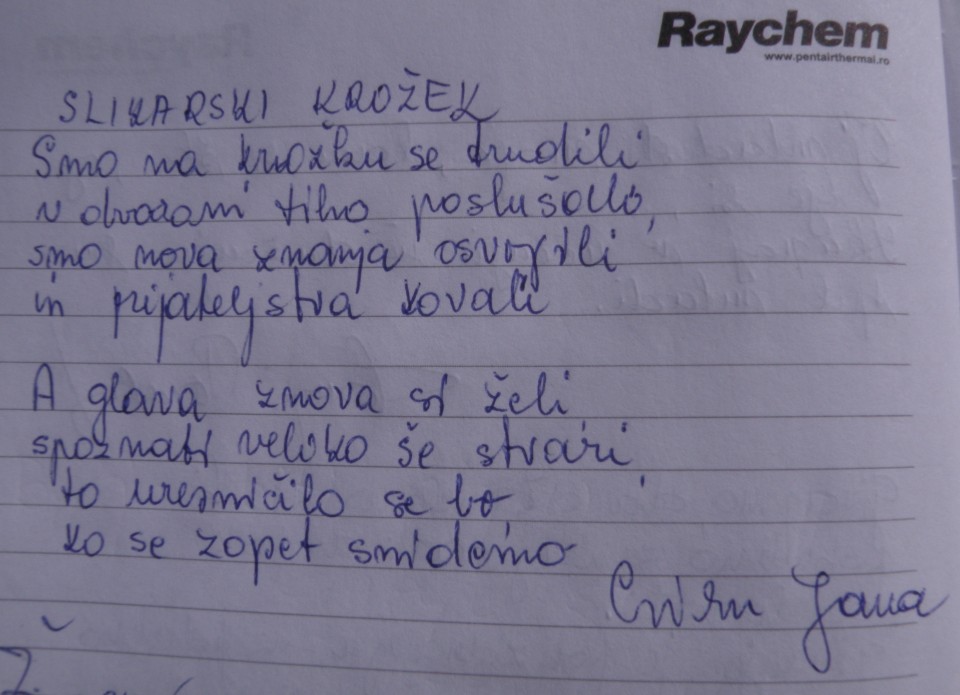 Raychem
www.pentairthermal.ro
SLIKARSKI KROŽEK
Smo na krožku se trudili
v dvorani tiho poslušali,
smo nova znanja osvojili
in prijateljstva kovali
A glava znova si želi
spoznati veliko še stvari,
to uresničilo se bo,
ko se zopet snidemo
Jana